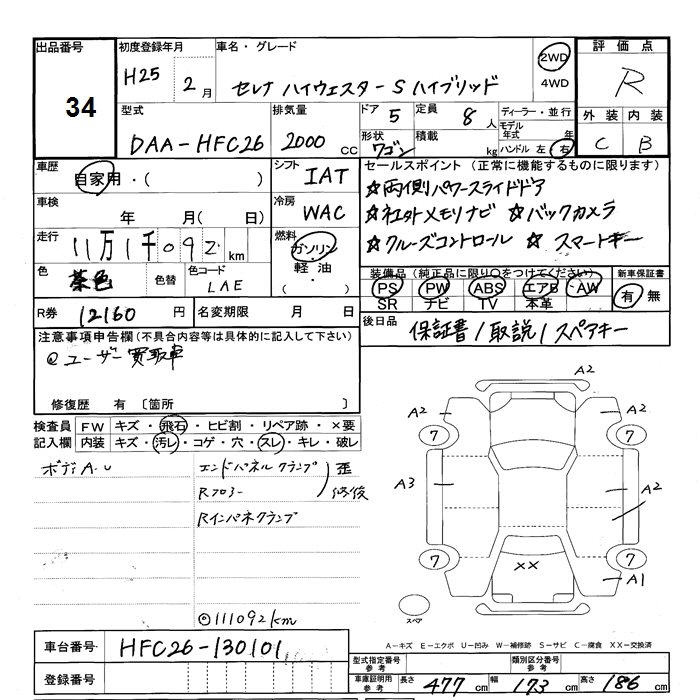 出品番号
34
初度登録年月
H25 2月
車名・グレード
セレナ ハイウェスターS ハイブリッド
2WD
4WD
評価点
R
外装 内装
C B
型式
DAA-HFC26
排気量
2000 CC
ドア 5
定員 8人
形状 ワゴン
積載 kg
ディーラー・並行
モデル年式 年
ハンドル 左 右
車歴
自家用・( )
シフト IAT
車検
年 月(日)
冷房 WAC
走行
11万1千092km
燃料
ガソリン
軽油
・
色
茶色
色替
色コード
LAE
R券 12160円
名変期限 月 日
セールスポイント (正常に機能するものに限ります)
☆両側パワースライドドア
☆社外メモリナビ ☆バックカメラ
☆クルーズコントロール ☆スマートキー
装備品(純正品に限り○をつけてください)
PS PW ABS エアB AW
SR ナビ TV 本革
新車保証書
有 無
後日品
保証書/取説/スペアキー
注意事項申告欄(不具合内容等は具体的に記入して下さい)
@ユーザー買取車
修復歴 有〔箇所 〕
検査員記入欄
FW キズ・飛石・ヒビ割・リペア跡・×要
内装 キズ・汚レ・コゲ・穴・スレ・キレ・破レ
ボディA.U
エンドパネルクランプ
Rフロアー
歪
修復
Rインパネクランプ
◎111092km
A2
A2
A2
7
7
A3
A2
7
7
XX
A1
スペア
A-キズ E-エクボ U-凹み W-補修跡 S-サビ C-腐食 XX-交換済
車台番号 HFC26-130101
登録番号
型式指定番号
参考
類別区分番号
参考
車庫証明用
参考
長さ 477cm 幅 173cm 高さ 186cm